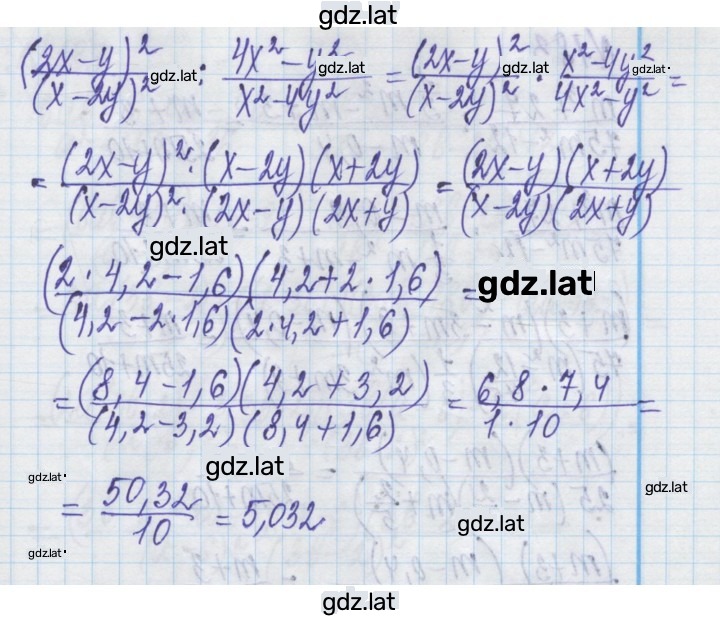 gdz.lat
(2x-y)²/(x-2y)² : (4x²-y²)/(x²-4y²) = (2x-y)²/(x-2y)² · (x²-4y²)/(4x²-y²) =
gdz.lat gdz.lat gdz.lat gdz.lat
= (2x-y)²·(x-2y)(x+2y)/(x-2y)²·(2x-y)(2x+y) = (2x-y)(x+2y)/(x-2y)(2x+y)
gdz.lat
(2·4,2-1,6)(4,2+2·1,6)/(4,2-2·1,6)(2·4,2+1,6) =
gdz.lat
= (8,4-1,6)(4,2+3,2)/(4,2-3,2)(8,4+1,6) = 6,8·7,4/1·10 =
gdz.lat
gdz.lat gdz.lat
= 50,32/10 = 5,032
gdz.lat
gdz.lat
gdz.lat